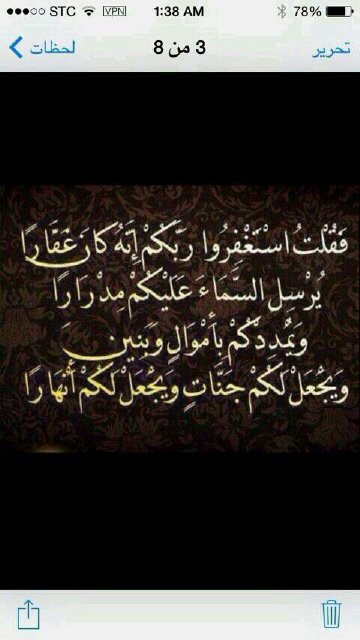 STC VPN 1:38 AM 78%
لحظات 3 من 8 تحرير
فَقُلْتُ اسْتَغْفِرُوا رَبَّكُمْ إِنَّهُ كَانَ غَفَّارًا
يُرْسِلِ السَّمَاءَ عَلَيْكُمْ مِدْرَارًا
وَيُمْدِدْكُمْ بِأَمْوَالٍ وَبَنِينَ
وَيَجْعَلْ لَكُمْ جَنَّاتٍ وَيَجْعَلْ لَكُمْ أَنْهَارًا